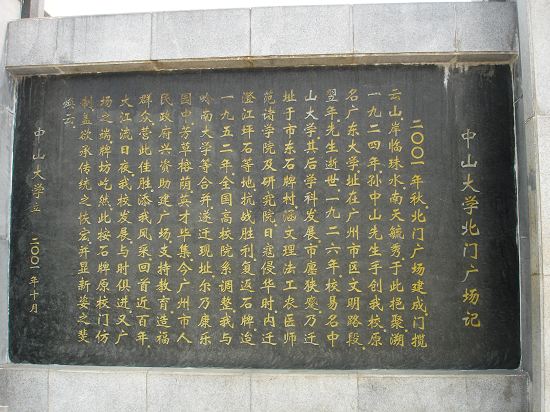 中山大学北门广场记
二〇〇一年秋，北门广场建成。门揽
云山，岸临珠水，南天毓秀，于此挹聚。溯
一九二四年，孙中山先生手创我校，原
名广东大学，址在广州市区文明路段。
翌年先生逝世，一九二六年，校易名中
山大学。其后学科发展，市廛狭窄，乃迁
址于市东石牌村，涵文理法工农医师
范诸学院及研究院。日寇侵华时内迁
澄江坪石等地，抗战胜利复返石牌。迨
一九五二年，全国高校院系调整，我与
岭南大学等合并，遂迁现址。尔乃康乐
园中，芳草榕荫，英才毕集。今广州市人
民政府兴资助建广场，支持教育，造福
群众，营此佳胜，添我风采。回首近百年，
大江流日夜，我校发展，与时俱进。又广
场之端，牌坊屹然，此按石牌原校门仿
制，盖欲承传统之恢宏，并显新姿之斐
然云。
中山大学立 二〇〇一年十月